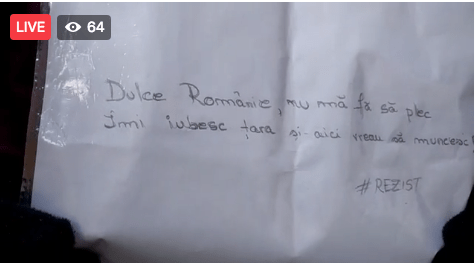 LIVE 64
Dulce Românie, nu mă fx să plec
Îmi iubesc țara și-aici vreau să muncesc!
#REZIST